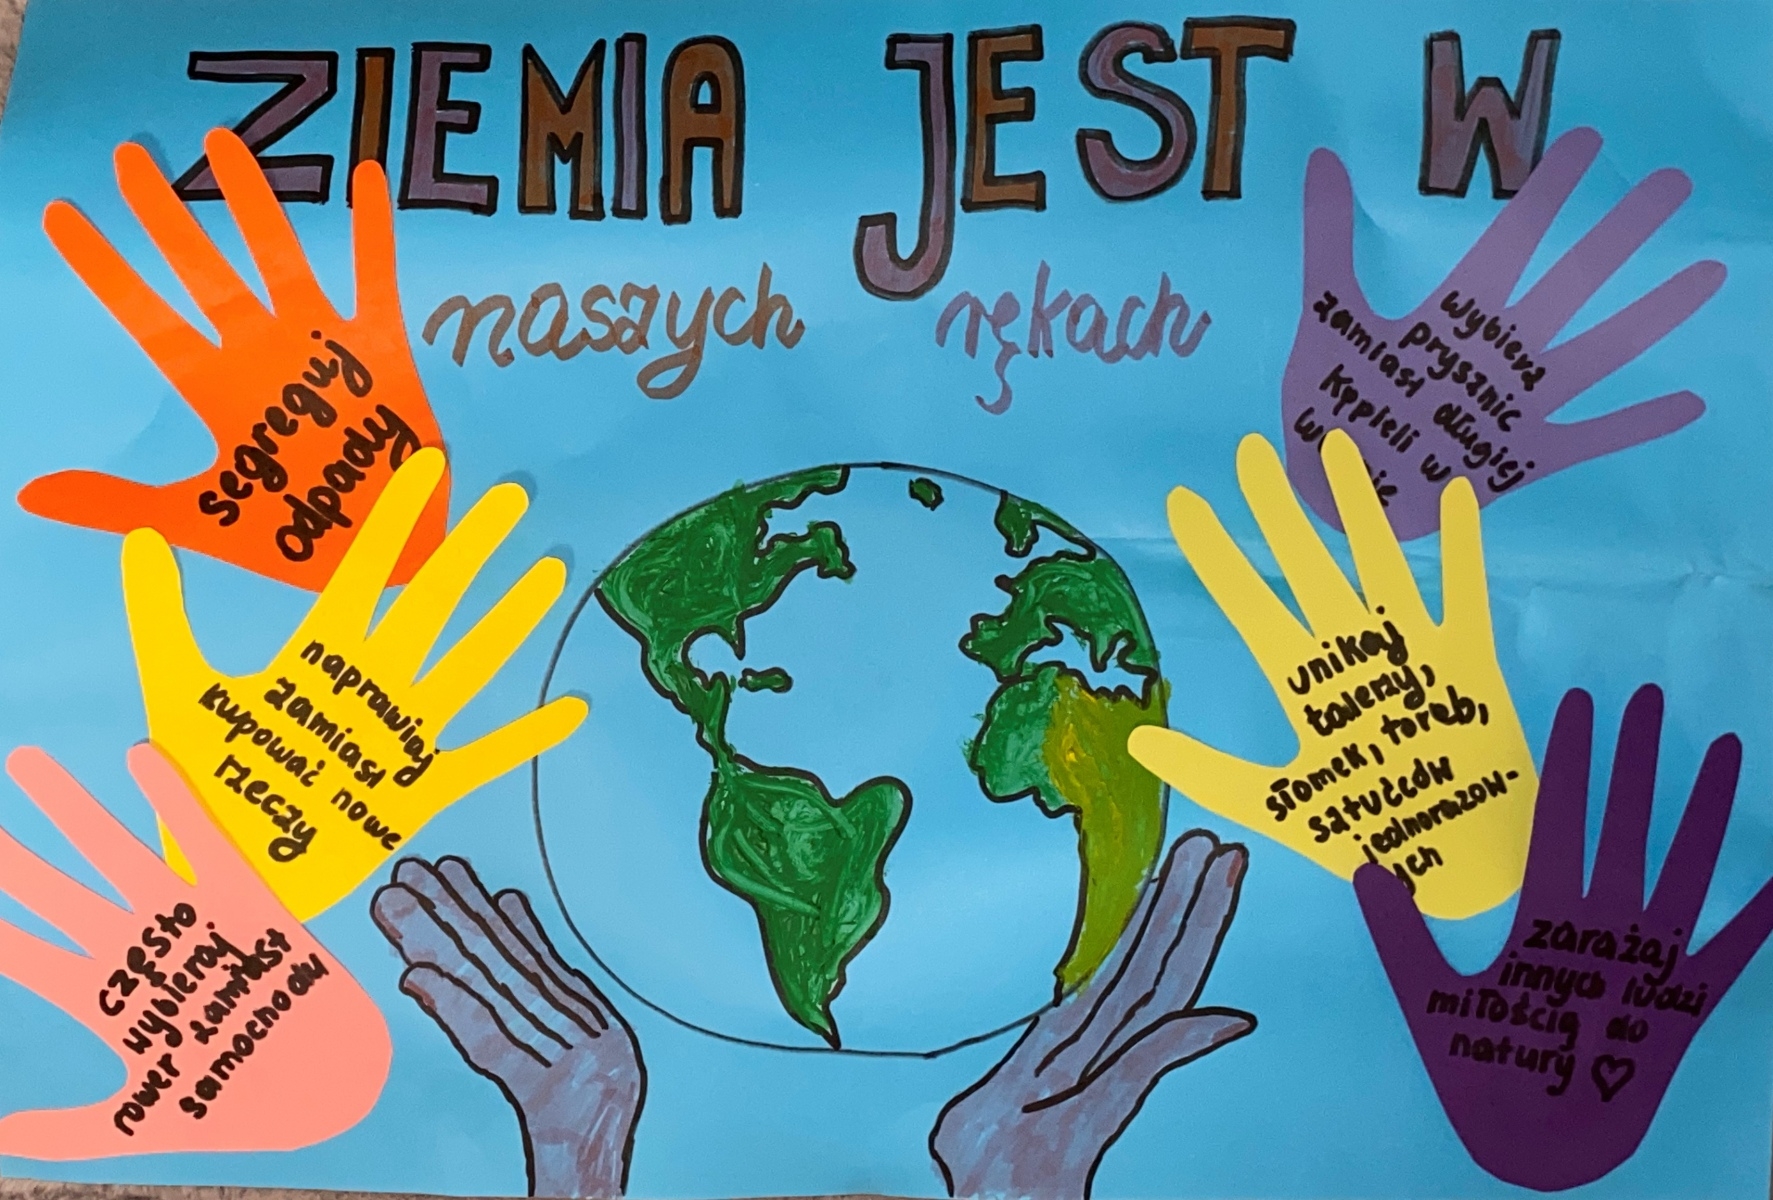 ZIEMIA JEST W
naszych rękach
segreguj
odpady
naprawiaj
zamiast
kupować nowe
rzeczy
często
wybieraj
rower zamiast
samochodu
wybiera
prysznic
zamiast długiej
kąpieli w
unikaj
talerzy,
słomek, toreb,
sztućców
jednorazow-
ych
zarażaj
innych ludzi
miłością do
natury ♡